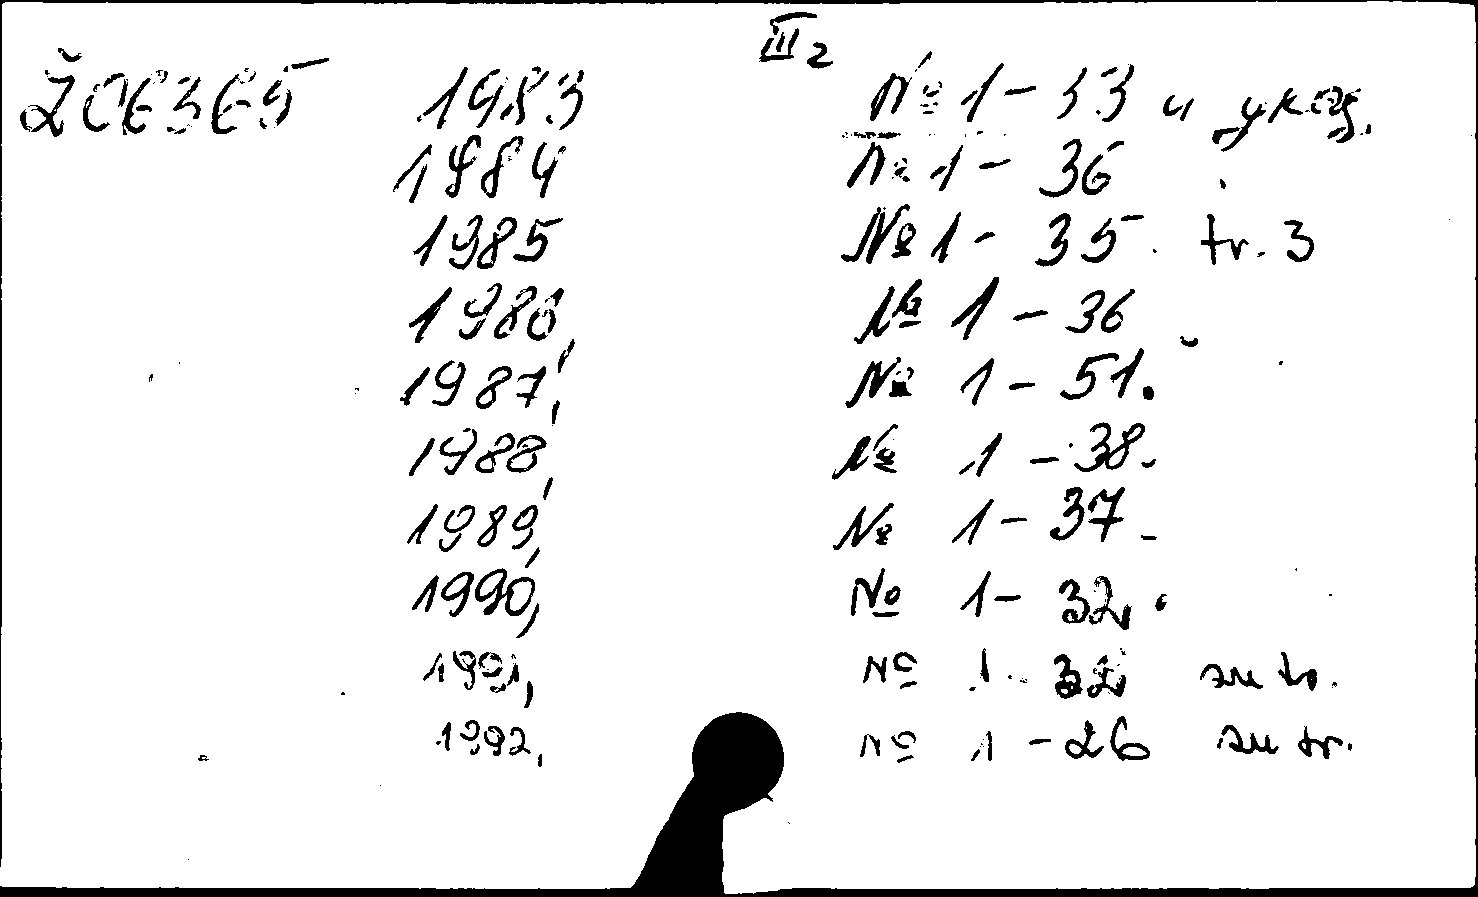 III 2
Ž06365 1983 № 1 - 33 и указ.
1984 № 1 - 36
1985 № 1 - 35 tr. 3
1986, № 1 - 36
1987, № 1 - 51.
1988, № 1 - 38.
1989, № 1 - 37
1990, № 1 - 32,
1991, № 1 - 32 su tr.
1992, № 1 - 26 su tr.